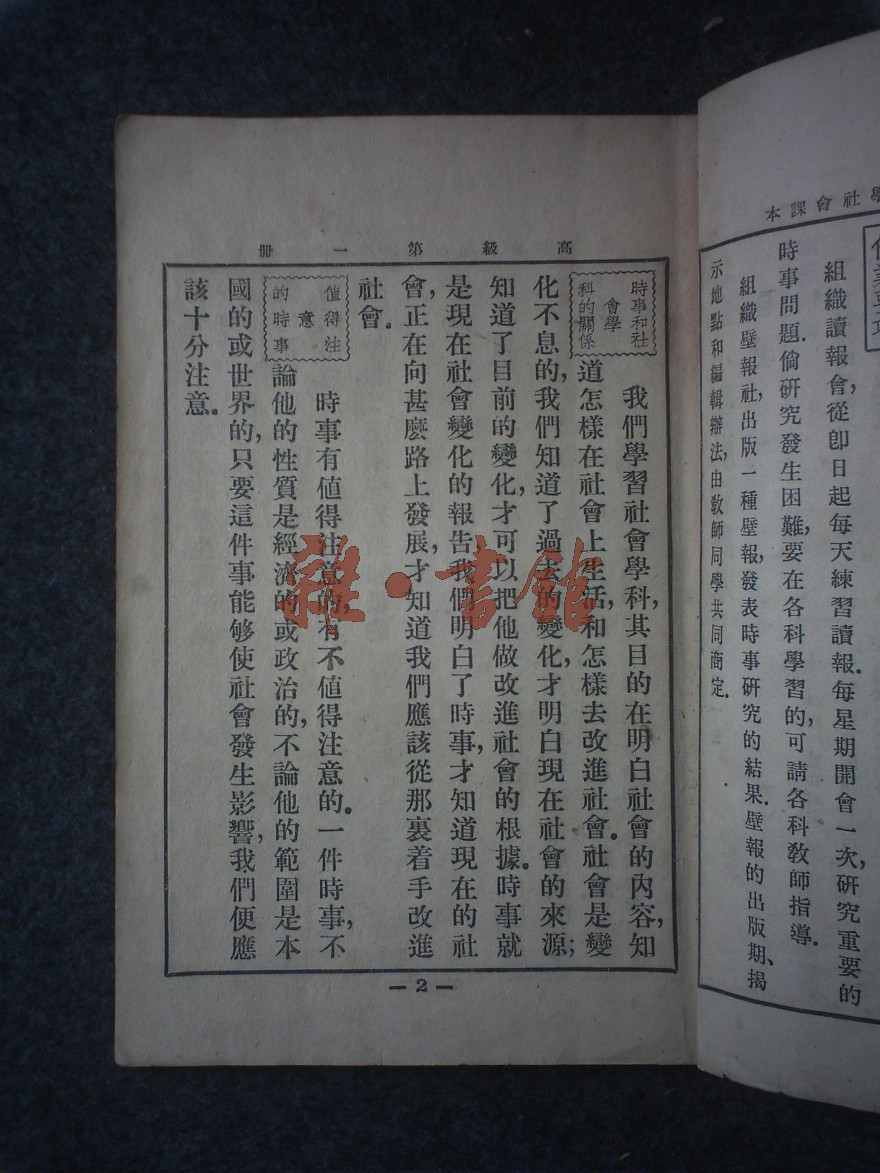 學社會課本
作業要項
組織讀報會,從卽日起每天練習讀報.每星期開會一次,硏究重要的
時事問題.倘硏究發生困難,要在各科學習的,可請各科敎師指導.
組織壁報社,出版一種壁報,發表時事硏究的結果.壁報的出版期、揭
示地點和編輯辦法,由敎師同學共同商定.
高級第一冊
時事和社
會學
科的關係
我們學習社會學科,其目的在明白社會的內容,知
道怎樣在社會上生活,和怎樣去改進社會.社會是變
化不息的,我們知道了過去的變化,才明白現在社會的來源;
知道了目前的變化,才可以把他做改進社會的根據.時事就
是現在社會變化的報告,我們明白了時事,才知道現在的社
會,正在向甚麽路上發展,才知道我們應該從那裏着手改進
社會.
值得注
意
的時事
時事有値得注意的,有不値得注意的.一件時事,不
論他的性質是經濟的或政治的,不論他的範圍是本
國的或世界的,只要這件事能够使社會發生影響,我們便應
該十分注意.
— 2 —
雜·書館